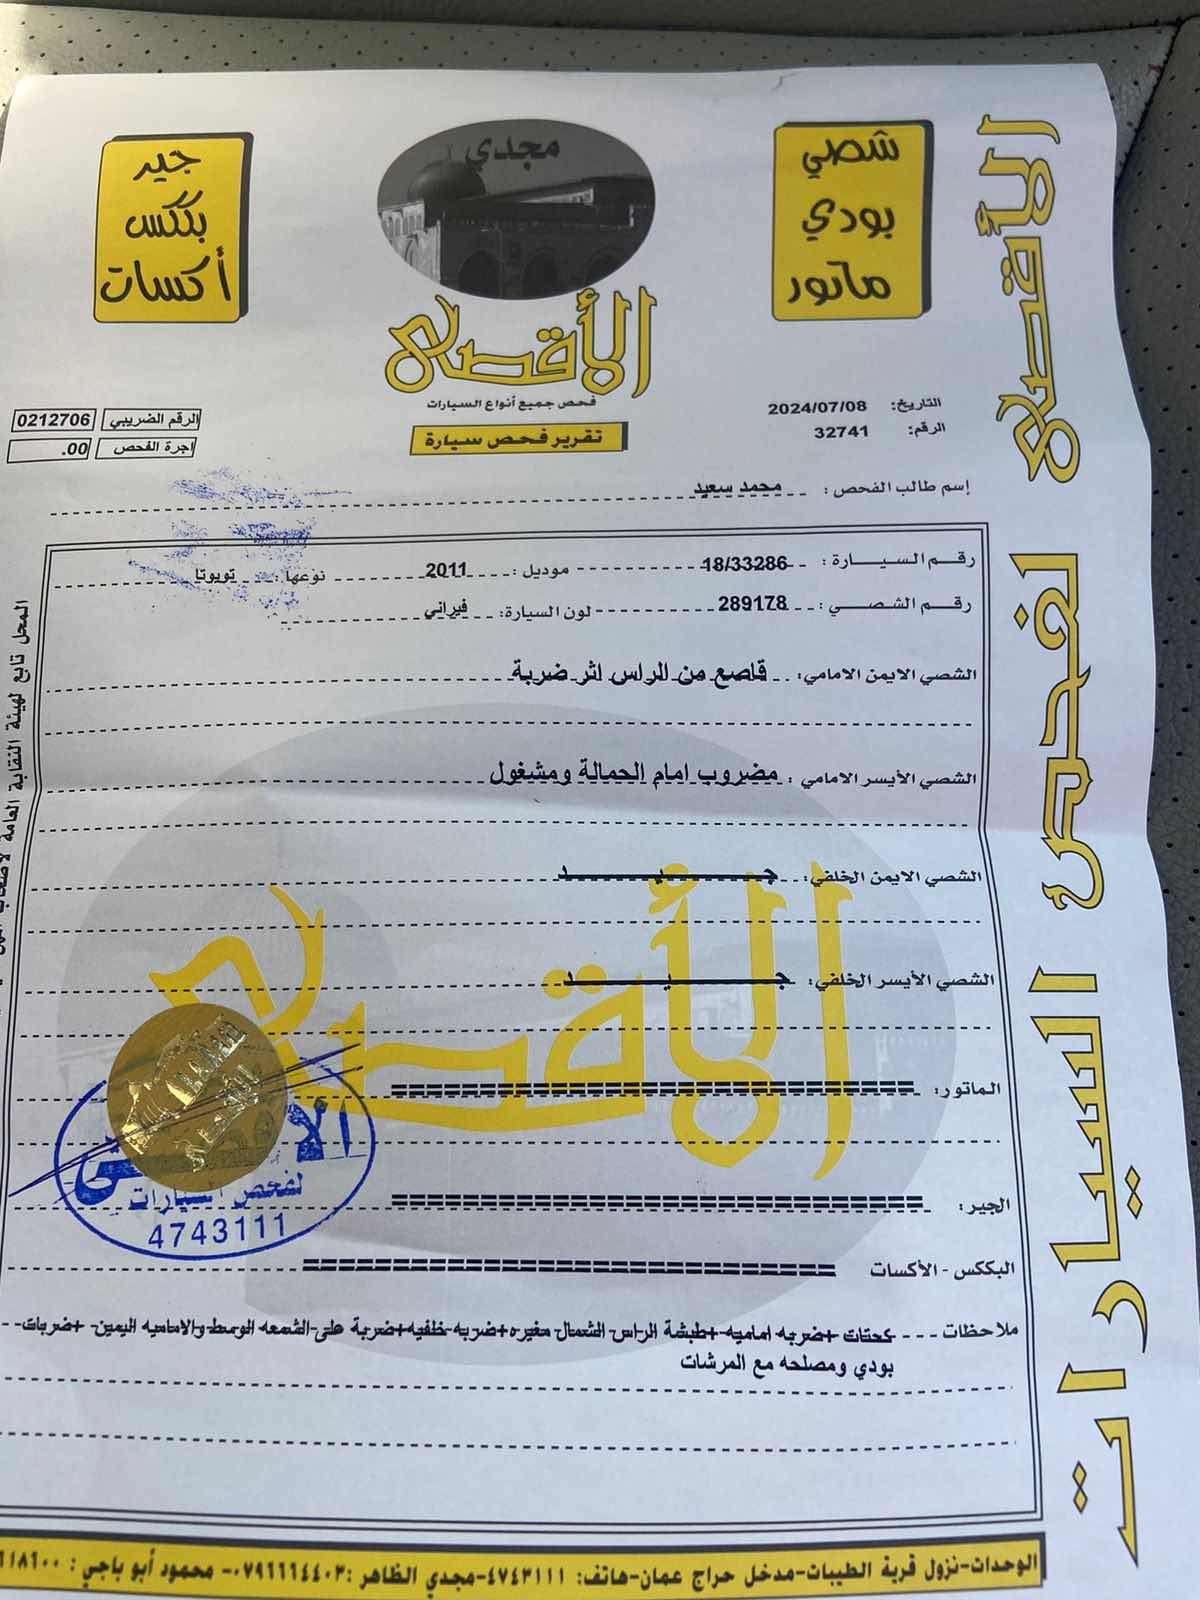 شصي
بودي
ماتور
مجدي
الأقصى
فحص جميع أنواع السيارات
تقرير فحص سيارة
جير
بككس
أكسات
التاريخ: 2024/07/08
الرقم: 32741
الرقم الضريبي 0212706
اجرة الفحص .00
إسم طالب الفحص : محمد سعيد
رقم السيارة : 18/33286 موديل : 2011 نوعها : تويوتا
رقم الشصي : 289178 لون السيارة: فيراني
الشصي الايمن الامامي: قاصع من الراس اثر ضربة
الشصي الأيسر الامامي : مضروب امام الحمالة ومشغول
الشصي الايمن الخلفي: جيد
الشصي الأيسر الخلفي: جيد
الماتور: ================================
الجير: ================================
البككس - الأكسات ================================
ملاحظات كحتات +ضربه اماميه +طبشة الراس الشمال صغيره+ضربه خلفيه+ضربة على الشمعه الوسط والاماميه اليمين +ضربات
بودي ومصلحه مع المرشات
الأقصى
الأقصى
لفحص السيارات
4743111
الأقصى لفحص السيارات
المحل تابع لهيئة النقابة العامة
الوحدات-نزول قرية الطيبات-مدخل حراج عمان-هاتف: ٤٧٤٣١١١-مجدي الظاهر :٠٧٩٦٦٦٤٤٠٣- محمود أبو باجي :